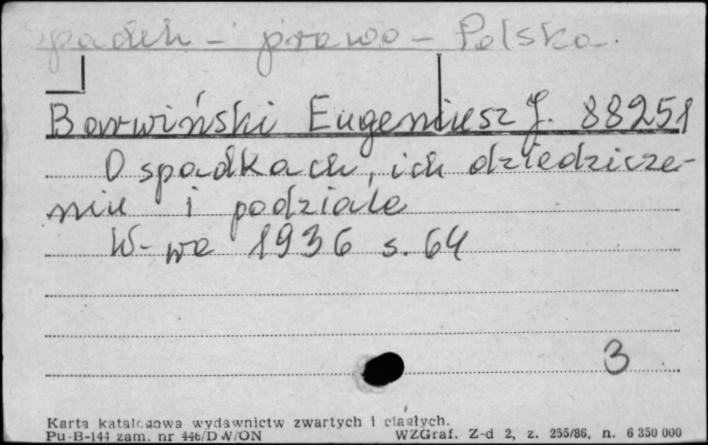 Spadek - prawo - Polska.
Barwiński Eugeniusz J. 88251
O spadkach, ich dziedzicze-
niu i podziale
W-wa 1936 s. 64
3
Karta katalogowa wydawnictw zwartych i ciągłych.
Pu-B-144 zam. nr 446/DW/ON WZGraf. Z-d 2, z. 255/86, n. 6 350 000